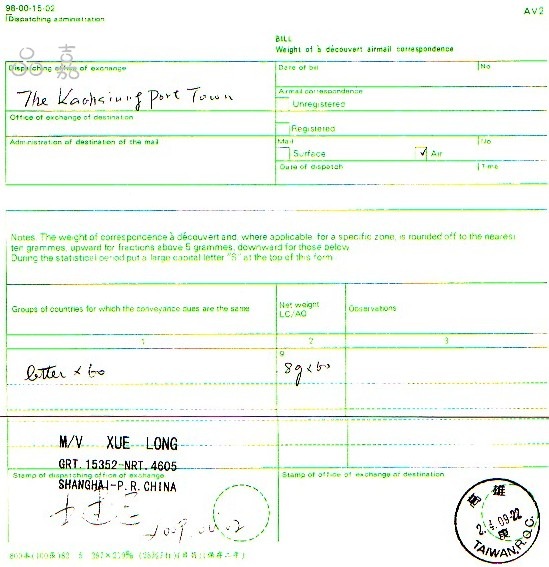 98-00-15-02
Dispatching administration
AV2
嘉
BILL
Weight of à découvert airmail correspondence
Dispatching office of exchange
The Kaohsiung Port Town
Date of bill
No
Airmail correspondence
Unregistered
Office of exchange of destination
Registered
Administration of destination of the mail
Mail
No
Surface
✓ Air
Date of dispatch
Time
Notes. The weight of correspondence à découvert and, where applicable, for a specific zone, is rounded off to the nearest
ten grammes, upward for fractions above 5 grammes, downward for those below.
During the statistical period put a large capital letter "S" at the top of this form
Groups of countries for which the conveyance dues are the same
Net weight
LC/AO
Observations
1
2
3
g
letter × 60
8g×60
M/V XUE LONG
GRT. 15352-NRT. 4605
Stamp of dispatching office of exchange
SHANGHAI-P.R.CHINA
Stamp of office of exchange of destination
高雄
2.4.09-22
TAIWAN,R.O.C.